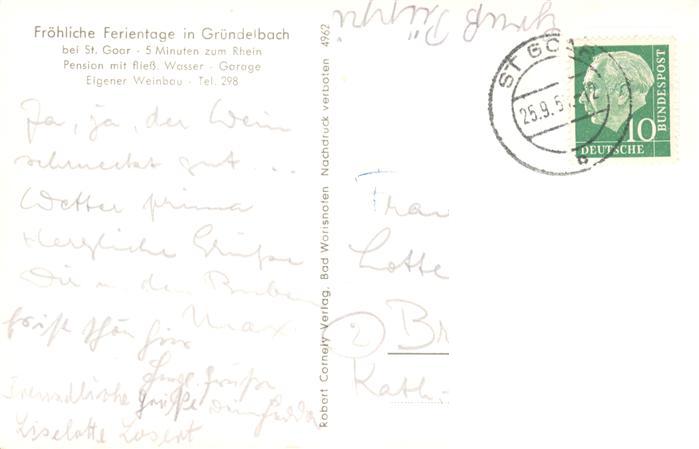 Fröhliche Ferientage in Gründelbach
bei St. Goar - 5 Minuten zum Rhein
Pension mit fließ. Wasser - Garage
Eigener Weinbau - Tel. 298
Ja, ja, der Wein
schmeckt gut ...
Wetter prima
Herzliche Grüße
Dir u. den Buben
Max.
Grüße
Freundliche Grüße
Liselotte Losert
Robert Cornely Verlag, Bad Worisnoten Nachdruck verboten 4962
ST GOAR
25.9.5
10
DEUTSCHE
BUNDESPOST
Frau
Lotte
2
Br
Kath.